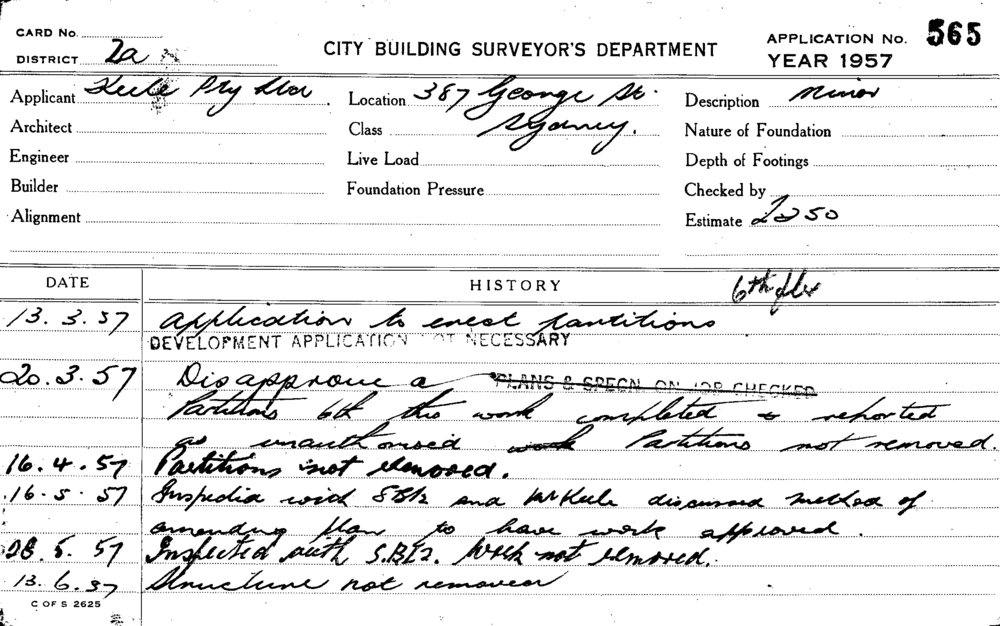 CARD No.
DISTRICT 2a
CITY BUILDING SURVEYOR'S DEPARTMENT
APPLICATION No. 565
YEAR 1957
Applicant Keele Pty Ltd
Architect
Engineer
Builder
Alignment
Location 387 George St.
Class Sydney.
Live Load
Foundation Pressure
Description Minor
Nature of Foundation
Depth of Footings
Checked by
Estimate £250
DATE HISTORY 6th flr
13.3.57 Application to erect partitions
DEVELOPMENT APPLICATION NOT NECESSARY
20.3.57 Disapprove PLANS & SPECN. ON JOB CHECKED
Partitions 6th this work completed & reported
as unauthorised Partitions not removed.
16.4.57 Partitions not removed.
16.5.57 and Mr Keele discussed method of
amending plan to have work approved.
28.5.57 Inspected with Work not removed.
13.6.57 Structure not removed
C OF S 2625